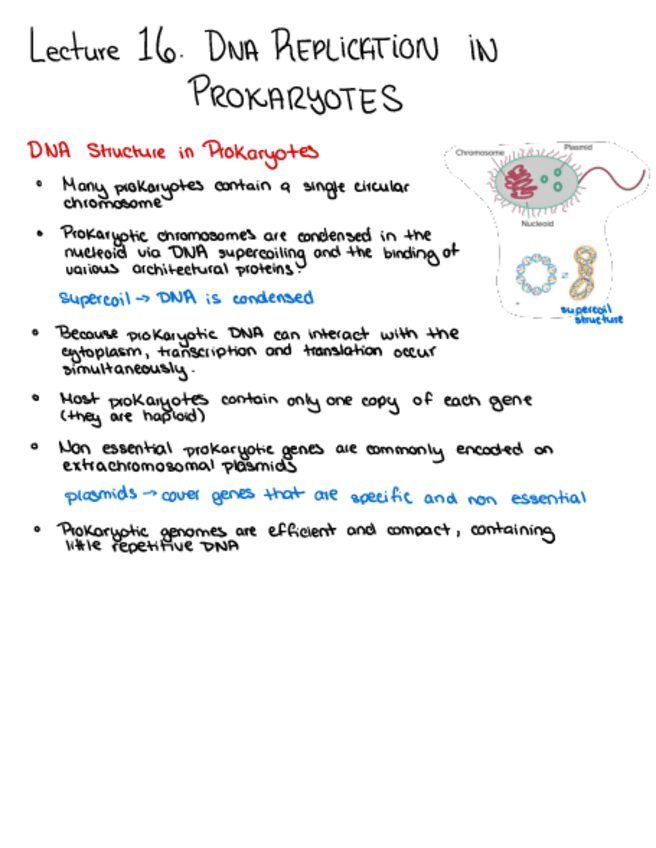 Lecture 16. DNA REPLICATION IN
PROKARYOTES
DNA Structure in Prokaryotes
Chromosome
Plasmid
Nucleoid
• Many prokaryotes contain a single circular
chromosome
• Prokaryotic chromosomes are condensed in the
nucleoid via DNA supercoiling and the binding of
various architectural proteins.
supercoil → DNA is condensed
supercoil
structure
• Because prokaryotic DNA can interact with the
cytoplasm, transcription and translation occur
simultaneously.
• Most prokaryotes contain only one copy of each gene
(they are haploid)
• Non essential prokaryotic genes are commonly encoded on
extrachromosomal plasmids
plasmids → cover genes that are specific and non essential
• Prokaryotic genomes are efficient and compact, containing
little repetitive DNA